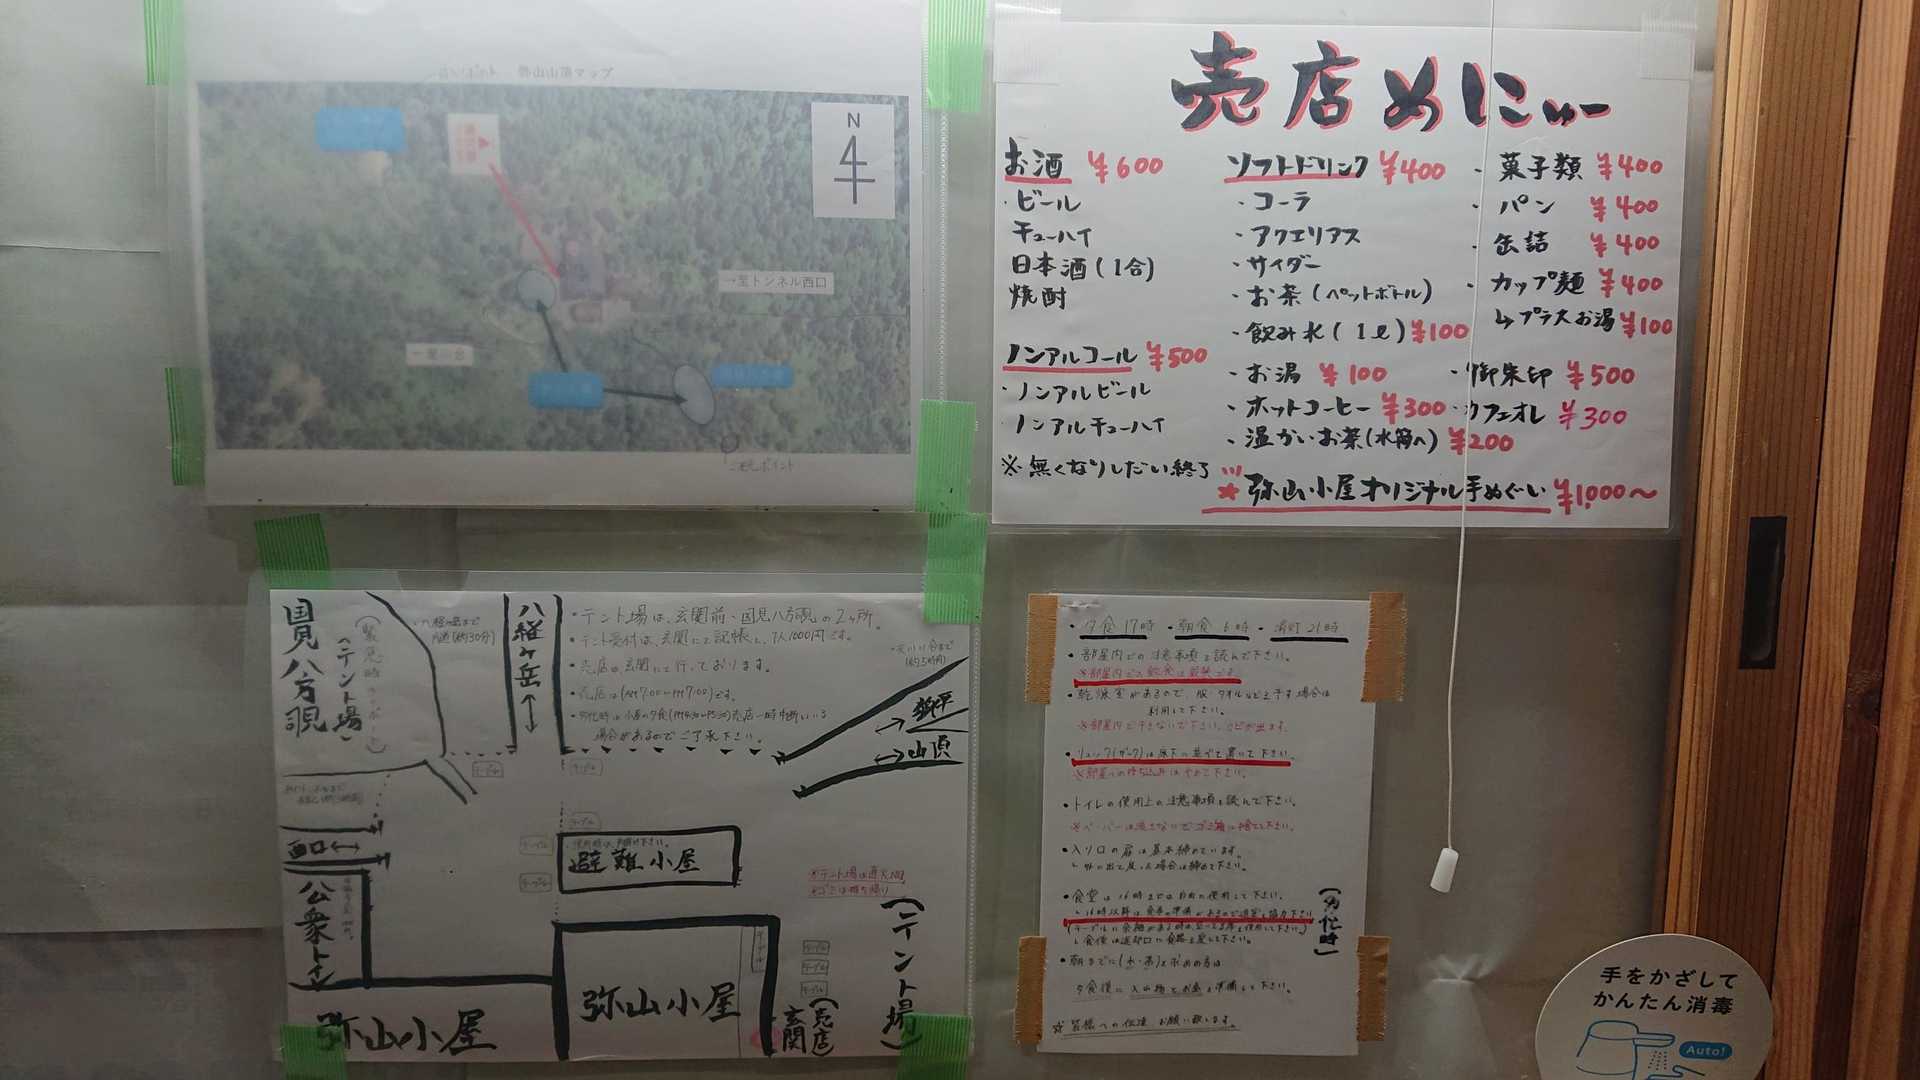 弥山山頂マップ
N
→至トンネル西口
売店めにゅー
お酒 ¥600
・ビール
チューハイ
日本酒(1合)
焼酎
ノンアルコール ¥500
・ノンアルビール
・ノンアルチューハイ
※無くなりしだい終了
ソフトドリンク ¥400
・コーラ
・アクエリアス
・サイダー
・お茶(ペットボトル)
・飲み水(1ℓ) ¥100
・お湯 ¥100
・ホットコーヒー ¥300
・温かいお茶(水筒へ) ¥200
・菓子類 ¥400
・パン ¥400
・缶詰 ¥400
・カップ麺 ¥400
↳プラスお湯 ¥100
・御朱印 ¥500
・カフェオレ ¥300
☆弥山小屋オリジナル手ぬぐい ¥1,000〜
国見八方覗
(テント場)
八経ヶ岳
・テント場は、玄関前・国見八方覗の2ヶ所。
・テント受付は、玄関にて記帳と、1人1000円です。
・売店は玄関にて行っております。
・売店は(AM7:00〜PM7:00)です。
場合があるのでご了承下さい。
狼平
山頂
西口
公衆トイレ
テーブル
避難小屋
※テント場は直火NG
※ゴミは持ち帰り
弥山小屋
弥山小屋
玄関
(売店)
(テント場)
・夕食17時 ・朝食6時 ・消灯21時
・部屋内での注意事項を読んで下さい。
※部屋内での飲食は厳禁です
・乾燥室があるので、服・タオルなどを干す場合は
利用して下さい。
※部屋内で干さないで下さい。カビが出ます。
・リュック(ザック)は廊下に並べて置いて下さい。
※部屋への持ち込みはやめて下さい。
・トイレの使用上の注意事項を読んで下さい。
※ペーパーは流さないでゴミ箱に捨てて下さい。
・入り口の扉は基本締めています。
・食堂は16時までは自由に使用して下さい。
(多忙時)
☆皆様への伝達 お願い致します。
手をかざして
かんたん消毒
Auto!